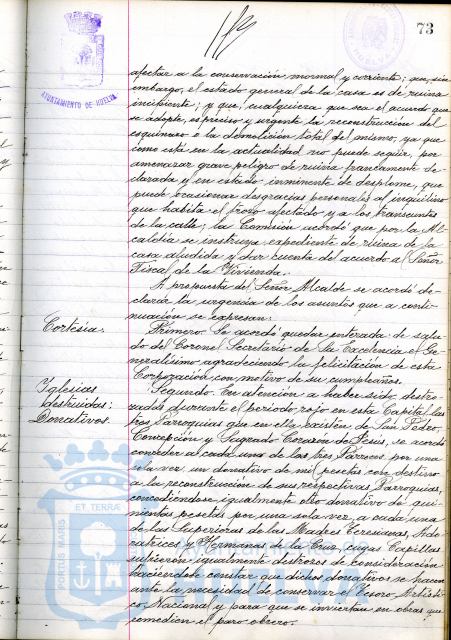 73
AYUNTAMIENTO DE HUELVA
HUELVA
afectar a la conservación normal y corriente; que, sin
embargo, el estado general de la casa es de ruina
incipiente; y que, cualquiera que sea el acuerdo que
se adopte, es preciso y urgente la reconstrucción del
esquinazo o la demolición total del mismo, ya que
como está en la actualidad no puede seguir, por
amenazar grave peligro de ruina francamente de-
clarada y en estado inminente de desplome, que
puede ocasionar desgracias personales al inquilino
que habita el trozo afectado y a los transeuntes
de la calle; la Comisión acordó que por la Al-
caldía se instruya expediente de ruina de la
casa aludida y dar cuenta del acuerdo al Señor
Fiscal de la Vivienda.
A propuesta del Señor Alcalde se acordó de-
clarar la urgencia de los asuntos que a conti-
nuación se expresan:
Cortesía.
Primero. Se acordó quedar enterada de salu-
do del Coronel Secretario de Su Excelencia el Ge-
neralísimo agradeciendo la felicitación de esta
Corporación con motivo de su cumpleaños.
Yglesias
destruidas:
Donativos.
Segundo. En atención a haber sido destro-
zadas durante el periodo rojo en esta Capital las
tres Parroquias que en ella existen de San Pedro,
Concepción y Sagrado Corazón de Jesús, se acordó
conceder al cada uno de los tres Párrocos por una
sola vez, un donativo de mil pesetas con destino
a la reconstrucción de sus respectivas Parroquias,
concediéndose igualmente otro donativo de qui-
nientas pesetas por una sola vez, a cada una
de las Superioras de las Madres Teresianas, Ado-
ratrices y Hermanas de la Cruz, cuyas Capillas
sufrieron igualmente destrozos de consideración
haciéndose constar que dichos donativos se hacen
ante la necesidad de conservar el Tesoro Artísti-
co Nacional y para que se inviertan en obras que
remedien el paro obrero.
PORTUS MARIS
ET TERRÆ